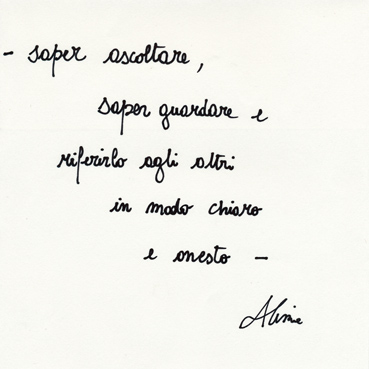 - saper ascoltare,
saper guardare e
riferirlo agli altri
in modo chiaro
e onesto -